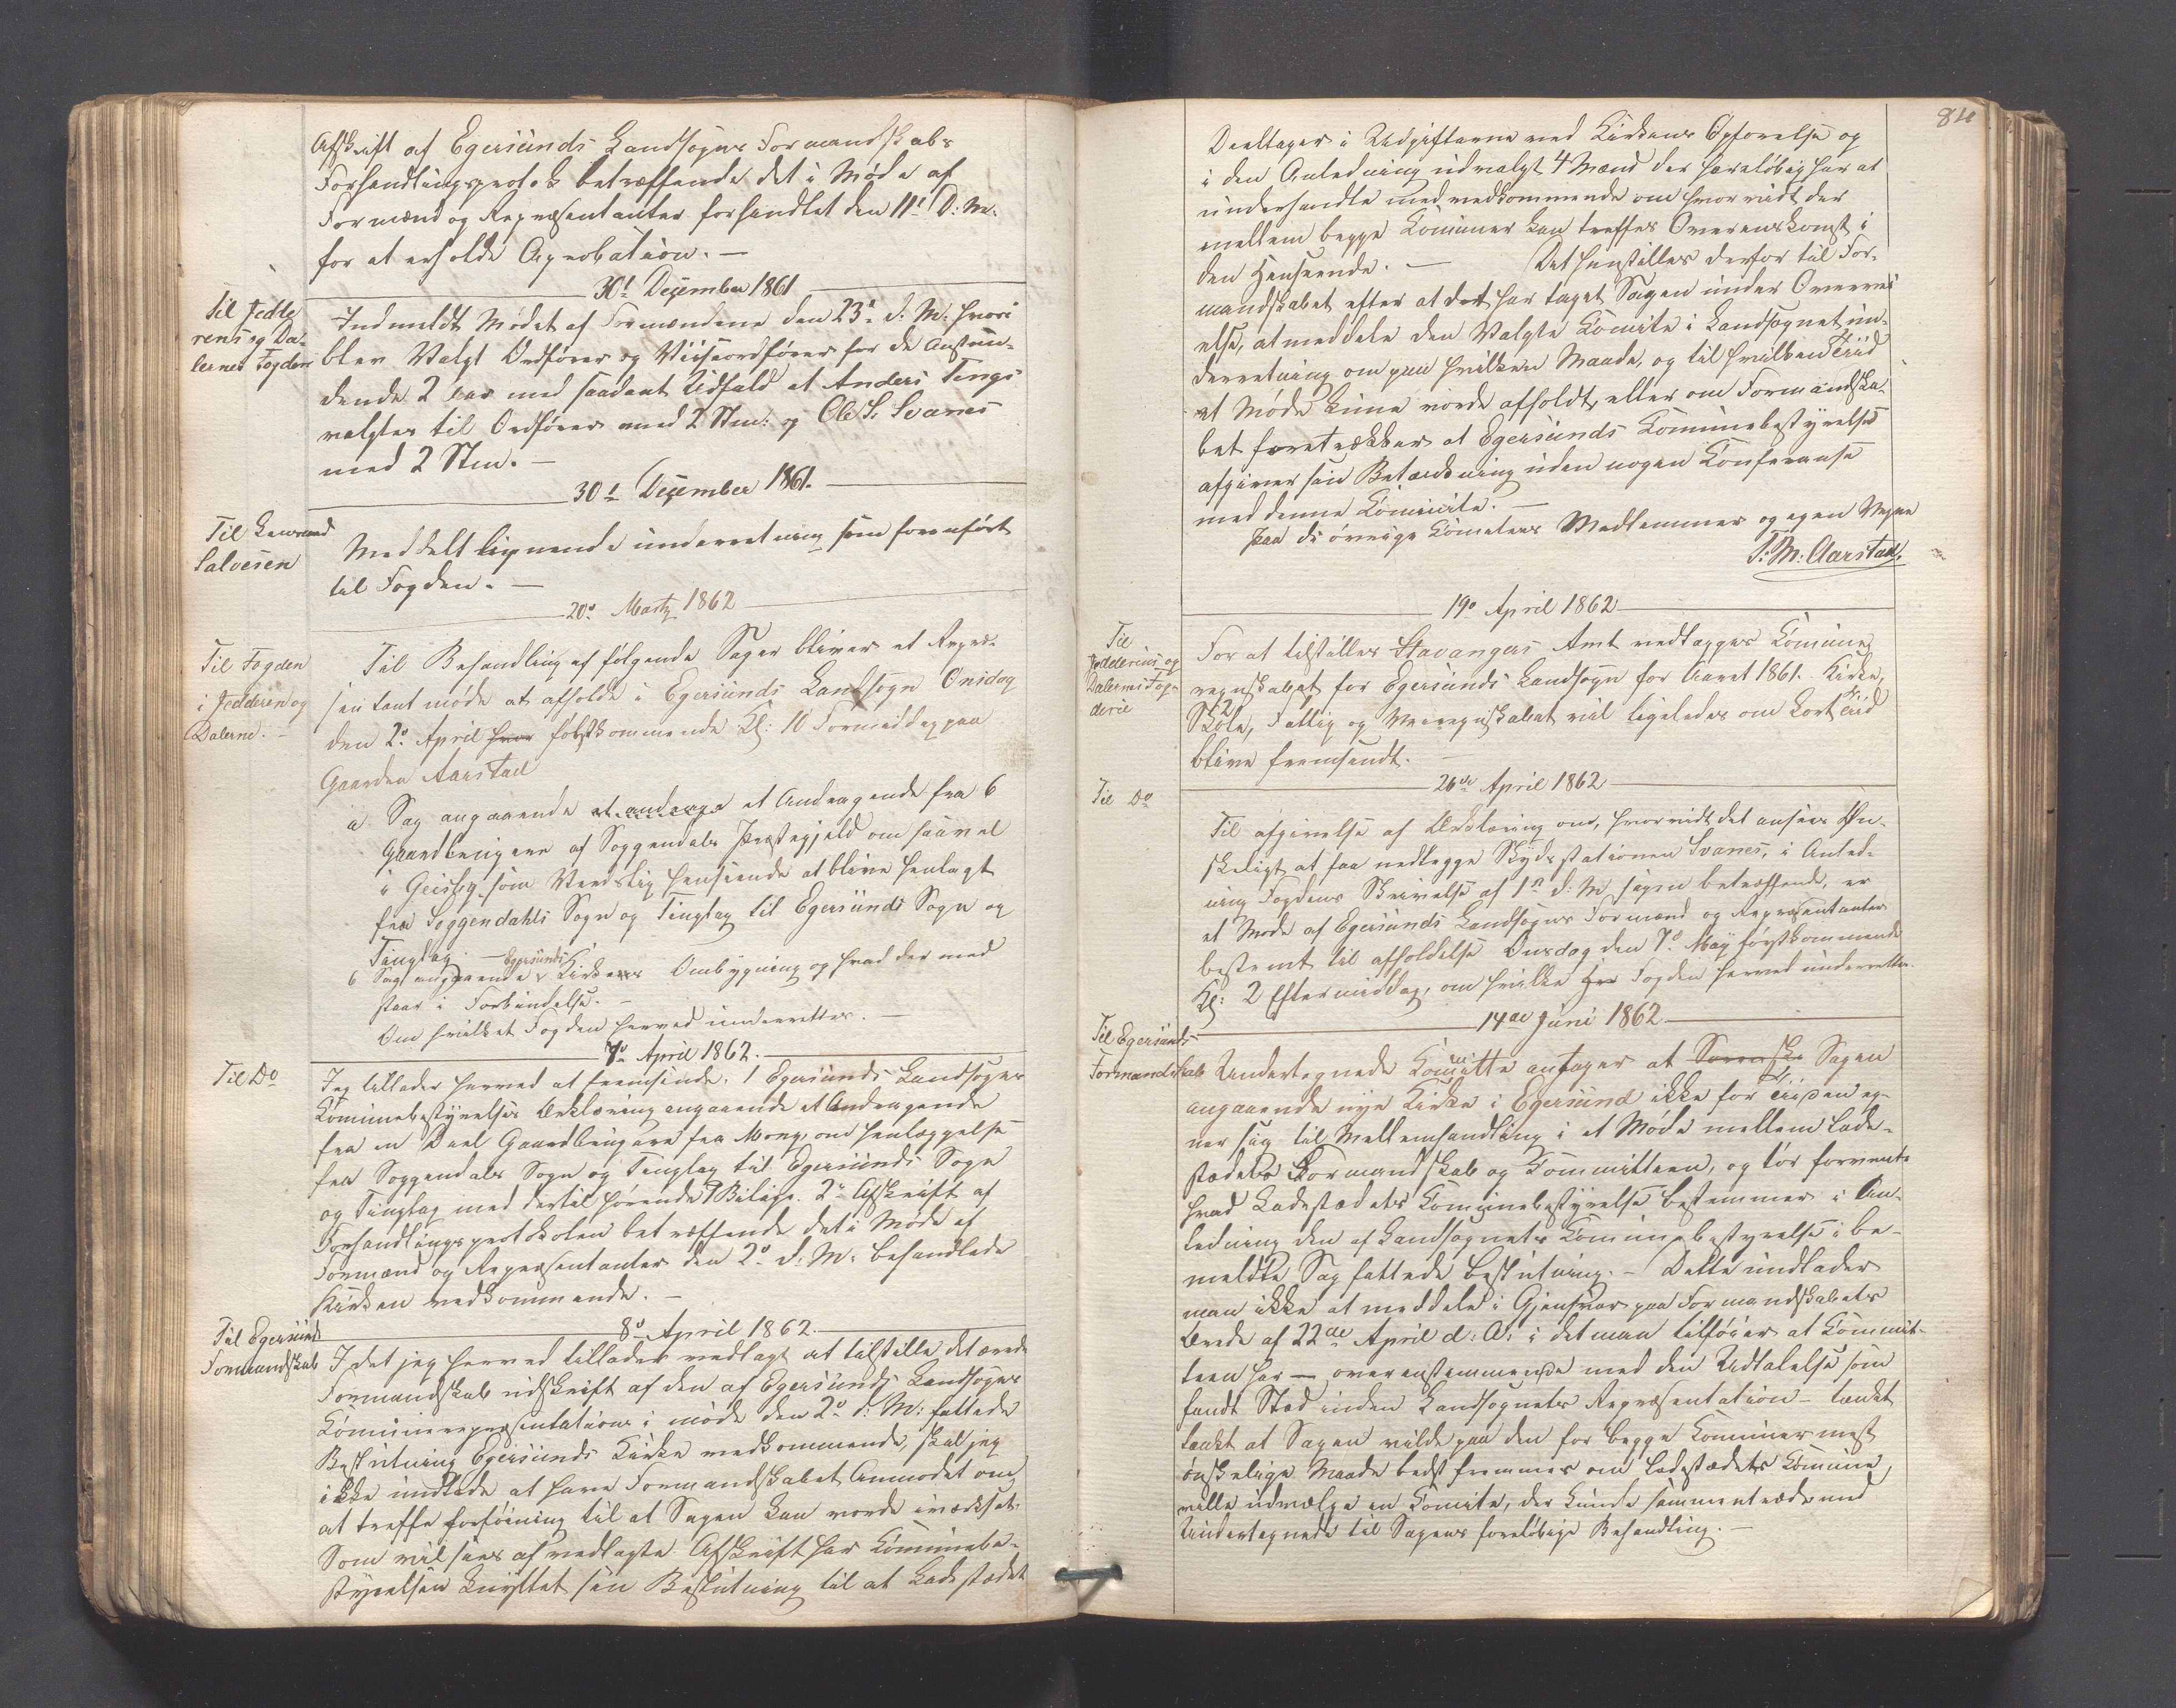 Afskrift af Egersunds Landsogns Formandskabs
Forhandlingsprotok betræffende det i Møde af
Formænd og Repræsentanter forhandlet den 11te D: M.
for at erholde Aprobation. —
30te Dezember 1861
Til Jedde
rens og Da-
lernes Fogderi
Indmeldt Mødet af Formændene den 23de d. M. hvori
blev Valgt Ordfører og Viiseordfører for de Anstun-
dende 2 Aar med saadant Udfald at Anders Tengs
valgtes til Ordfører med 2 Stm: og Ole S. Svanes
med 2 Stm. —
30te Dezember 1861.
Til Lensmand
Salvesen
Meddelt lignende underretning som foranført
til Fogden. —
20de Martz 1862
Til Fogden
i Jedderen og
Dalerne. —
Til Behandling af følgende Sager bliver et Repræ-
sentantmøde at afholde i Egersunds Landsogn Onsdag
den 2de April hvor førstkommende Kl: 10 Formiddag paa
Gaarden Aarstad
a Sag angaaende et andrage et Andragende fra 6
Gaardbrugere af Soggendals Præstegjeld om saavel
i Geistlig som Verdslig henseende at blive henlagt
fra Soggendahls Sogn og Tinglag til Egersunds Sogn og
Tinglag. —
6 Sag angaaende Egersunds Kirkes Ombygning og hvad der med
staar i Forbindelse. —
Om hvilket Fogden herved underrettes. —
7de April 1862.
Til Do
Jeg tillader herved at fremsende. 1 Egersunds Landsogns
Kommunebestyrelses Erklæring angaaende et Andragende
fra en Deel Gaardbrugere fra Mong, om henlæggelse
fra Soggendals Sogn og Tinglag til Egersunds Sogn
og Tinglag med dertil hørende 7 Bilage. 2de Afskrift af
Forhandlingsprotokolen betræffende det i Møde af
Formænd og Repræsentanter den 2de d. M. behandlede
Kirken vedkommende. —
8de April 1862.
Til Egersund
Formandskab
I det jeg herved tillader vedlagt at tilstille det ærede
Formandskab udskrift af den af Egersunds Landsogns
Kommunerepræsentations i møde den 2de d: M: fattede
Beslutning Egersunds Kirke vedkommende, skal jeg
ikke undlade at have Formandskabet Anmodet om
at treffe forføining til at Sagen kan vorde iværksat.
Som vil sees af vedlagte Afskrift har Kommunebe-
styrelsen knyttet sin Beslutning til at Ladestædet
84
Deeltager i Udgifterne ved Kirkens Opførelse og
i den Anledning udvalgt 4 Mænd der foreløbig har at
underhandle med vedkommende om hvorvidt der
mellem begge Kommuner kan treffes Overenskomst i
den Henseende. — Det henstilles derfor til For-
mandskabet efter at det har taget Sagen under Overvei
else, at meddele den Valgte Komite i Landsognet un-
derretning om paa hvilken Maade, og til hvilken Tiid
et Møde kune vorde afholdt, eller om Formandska-
bet foretrækker at Egersunds Kommunebestyrelse
afgiver sin Betænkning uden nogen Konferanse
med denne Kommite. —
Paa de øvrige Komiteens Medlemmer og egen Vegne
T. M. Aarstad,
19de April 1862
Til
Jedderens og
Dalernes Fog-
derie
For at tilstilles Stavangers Amt vedlægges Kommune
regnskabet for Egersunds Landsogn for Aaret 1861. Kirke,
Skole, Fattig og Veiregnskabet vil ligeledes om kort Tiid
blive fremsendt. —
26de April 1862
Til Do
Til afgivelse af Erklæring om, hvorvidt det ansees Øn-
skeligt at faa nedlegge Skydsstationen Svanes, i Anled-
ning Fogdens Skrivelse af 1ste d: M sagen betræffende, er
et Møde af Egersunds Landsogns Formænd og Repræsentanter
bestemt til afholdelse Onsdag den 7de May førstkommende
Kl: 2 Eftermiddag, om hvilke Hr Fogden herved underrettes.
14de Juni 1862
Til Egersunds
Formandskab
Undertegnede Komitte antager at Sagen
angaaende nye Kirke i Egersund ikke for Tiiden eg-
ner sig til Mellemhandling i et Møde mellem Lade-
stædets Formandskab og Kommitteen, og tør forvente
hvad Ladestædets Kommunebestyrelse bestemmer i An-
ledning den af Landsognets Kommunebestyrelse i be-
meldte Sag fattede Beslutning. — Dette undlader
man ikke at meddele i Gjensvar paa Formandskabets
Ærede af 22de April d: A: i det man tilføier at Kommit-
teen har — overensstemmende med den Udtalelse som
fandt Sted inden Landsognets Repræsentation — tænkt
tænkt at Sagen vilde paa den for begge Kommuner mest
ønskelige Maade bedst fremmes om Ladestædets Komune
ville udvælge en Komite, der kunde sammentræde med
Undertegnede til Sagens foreløbige Behandling. —